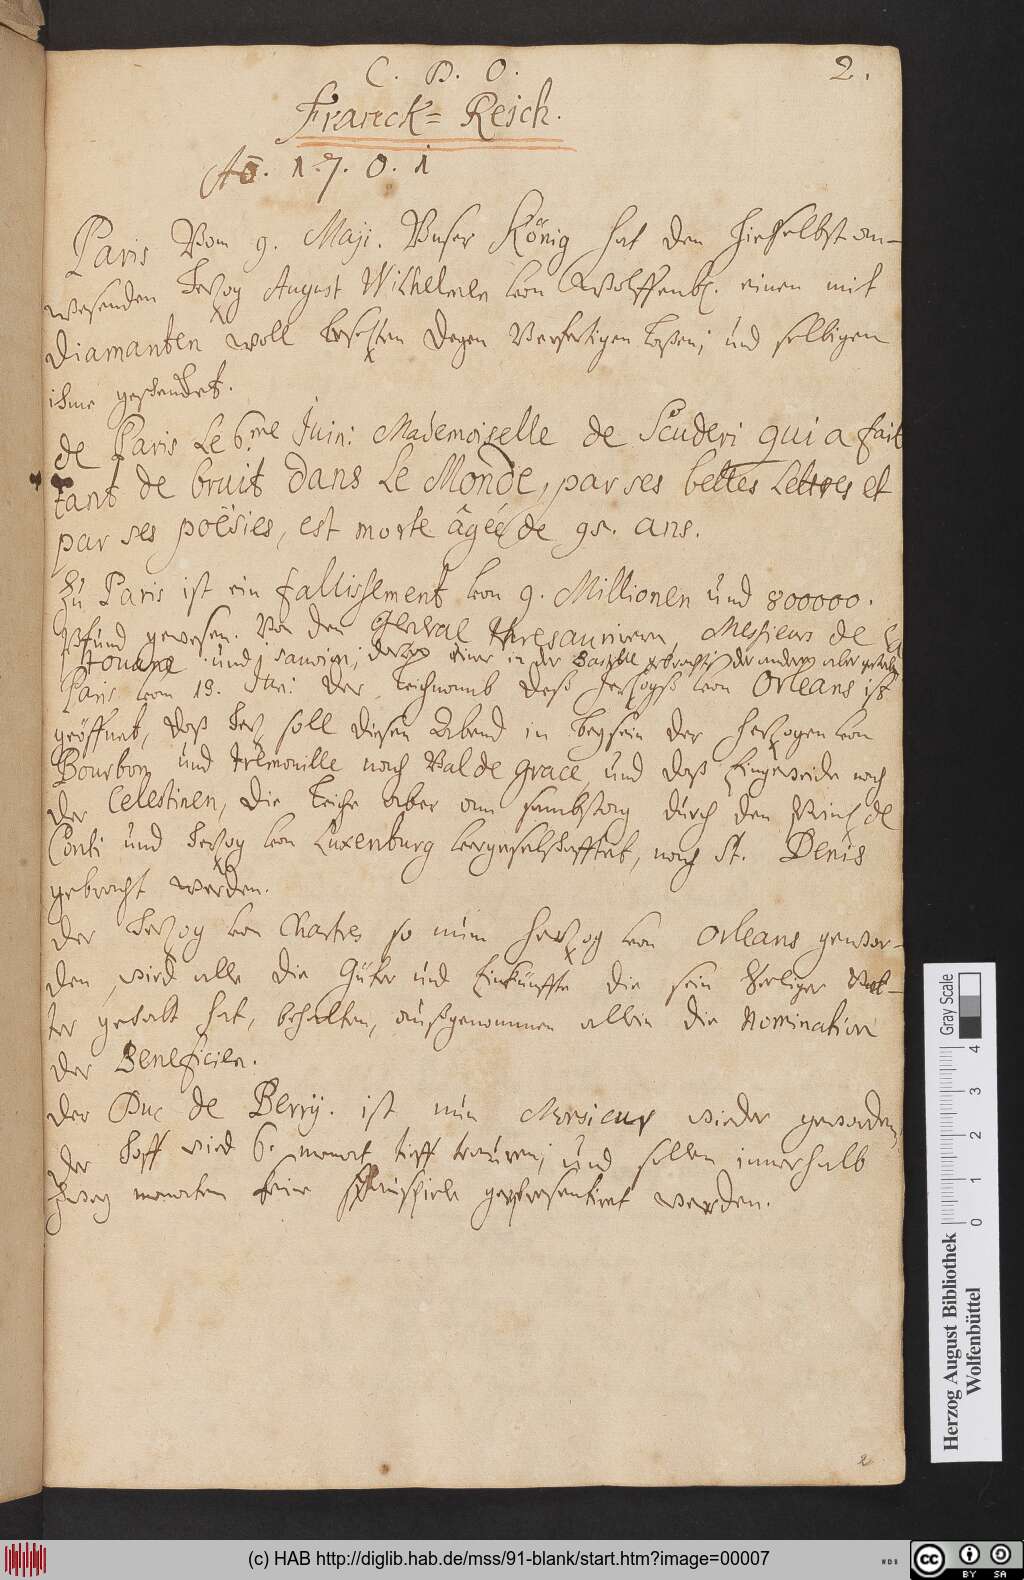 C. D. O.
2.
Franck= Reich.
Aō. 1.7.0.1
Paris Vom 9. Maji. Unser König hat den hieselbst an-
wesenden Hertzog August Wilhelmen von Wolffenb. einen mit
Diamanten woll besetzten Degen Verfertigen laßen; und selbigen
ihme geschencket.
de Paris Le 6.me Juin: Mademoiselle de Scuderi qui a fait
tant de bruit dans Le Monde, par ses belles Lettres et
par ses poësies, est morte âgée de 95. ans.
Zu Paris ist ein fallissement von 9. Millionen und 800000.
Pfund gewesen. Von den General thresaurirern, Messieurs de la
Touane und Sauvion; davon einer in der Bastille gebracht der andere aber
Paris vom 13. Jun: Der Leichnamb deß Hertzogß von Orleans ist
geöffnet, daß Hertz soll diesen Abend in beysein der Hertzogen von
Bourbon und Tremouille nach Val de grace, und daß Eingeweide nach
der Celestinen, die Leiche aber am Sambstag durch den Printz de
Conti und Hertzog von Luxenburg vergeselschafftet, nach St. Denis
gebracht werden.
Der Hertzog von Chartres so nun Hertzog von Orleans gewor-
den, wird alle die Güter und Einkünffte die sein Seeliger Vat-
ter gehabt hat, behalten, außgenommen allein die Nomination
der Beneficien.
Der Duc de Berry. ist nun Monsieur wieder geworden,
Der Hoff wird 6. monat tieff trauren; und sollen innerhalb
Zwey monaten keine Schauspiele gepresentiret werden.
2
Gray Scale
0 1 2 3 4
Herzog August Bibliothek
Wolfenbüttel
(c) HAB http://diglib.hab.de/mss/91-blank/start.htm?image=00007
WDB
cc BY SA